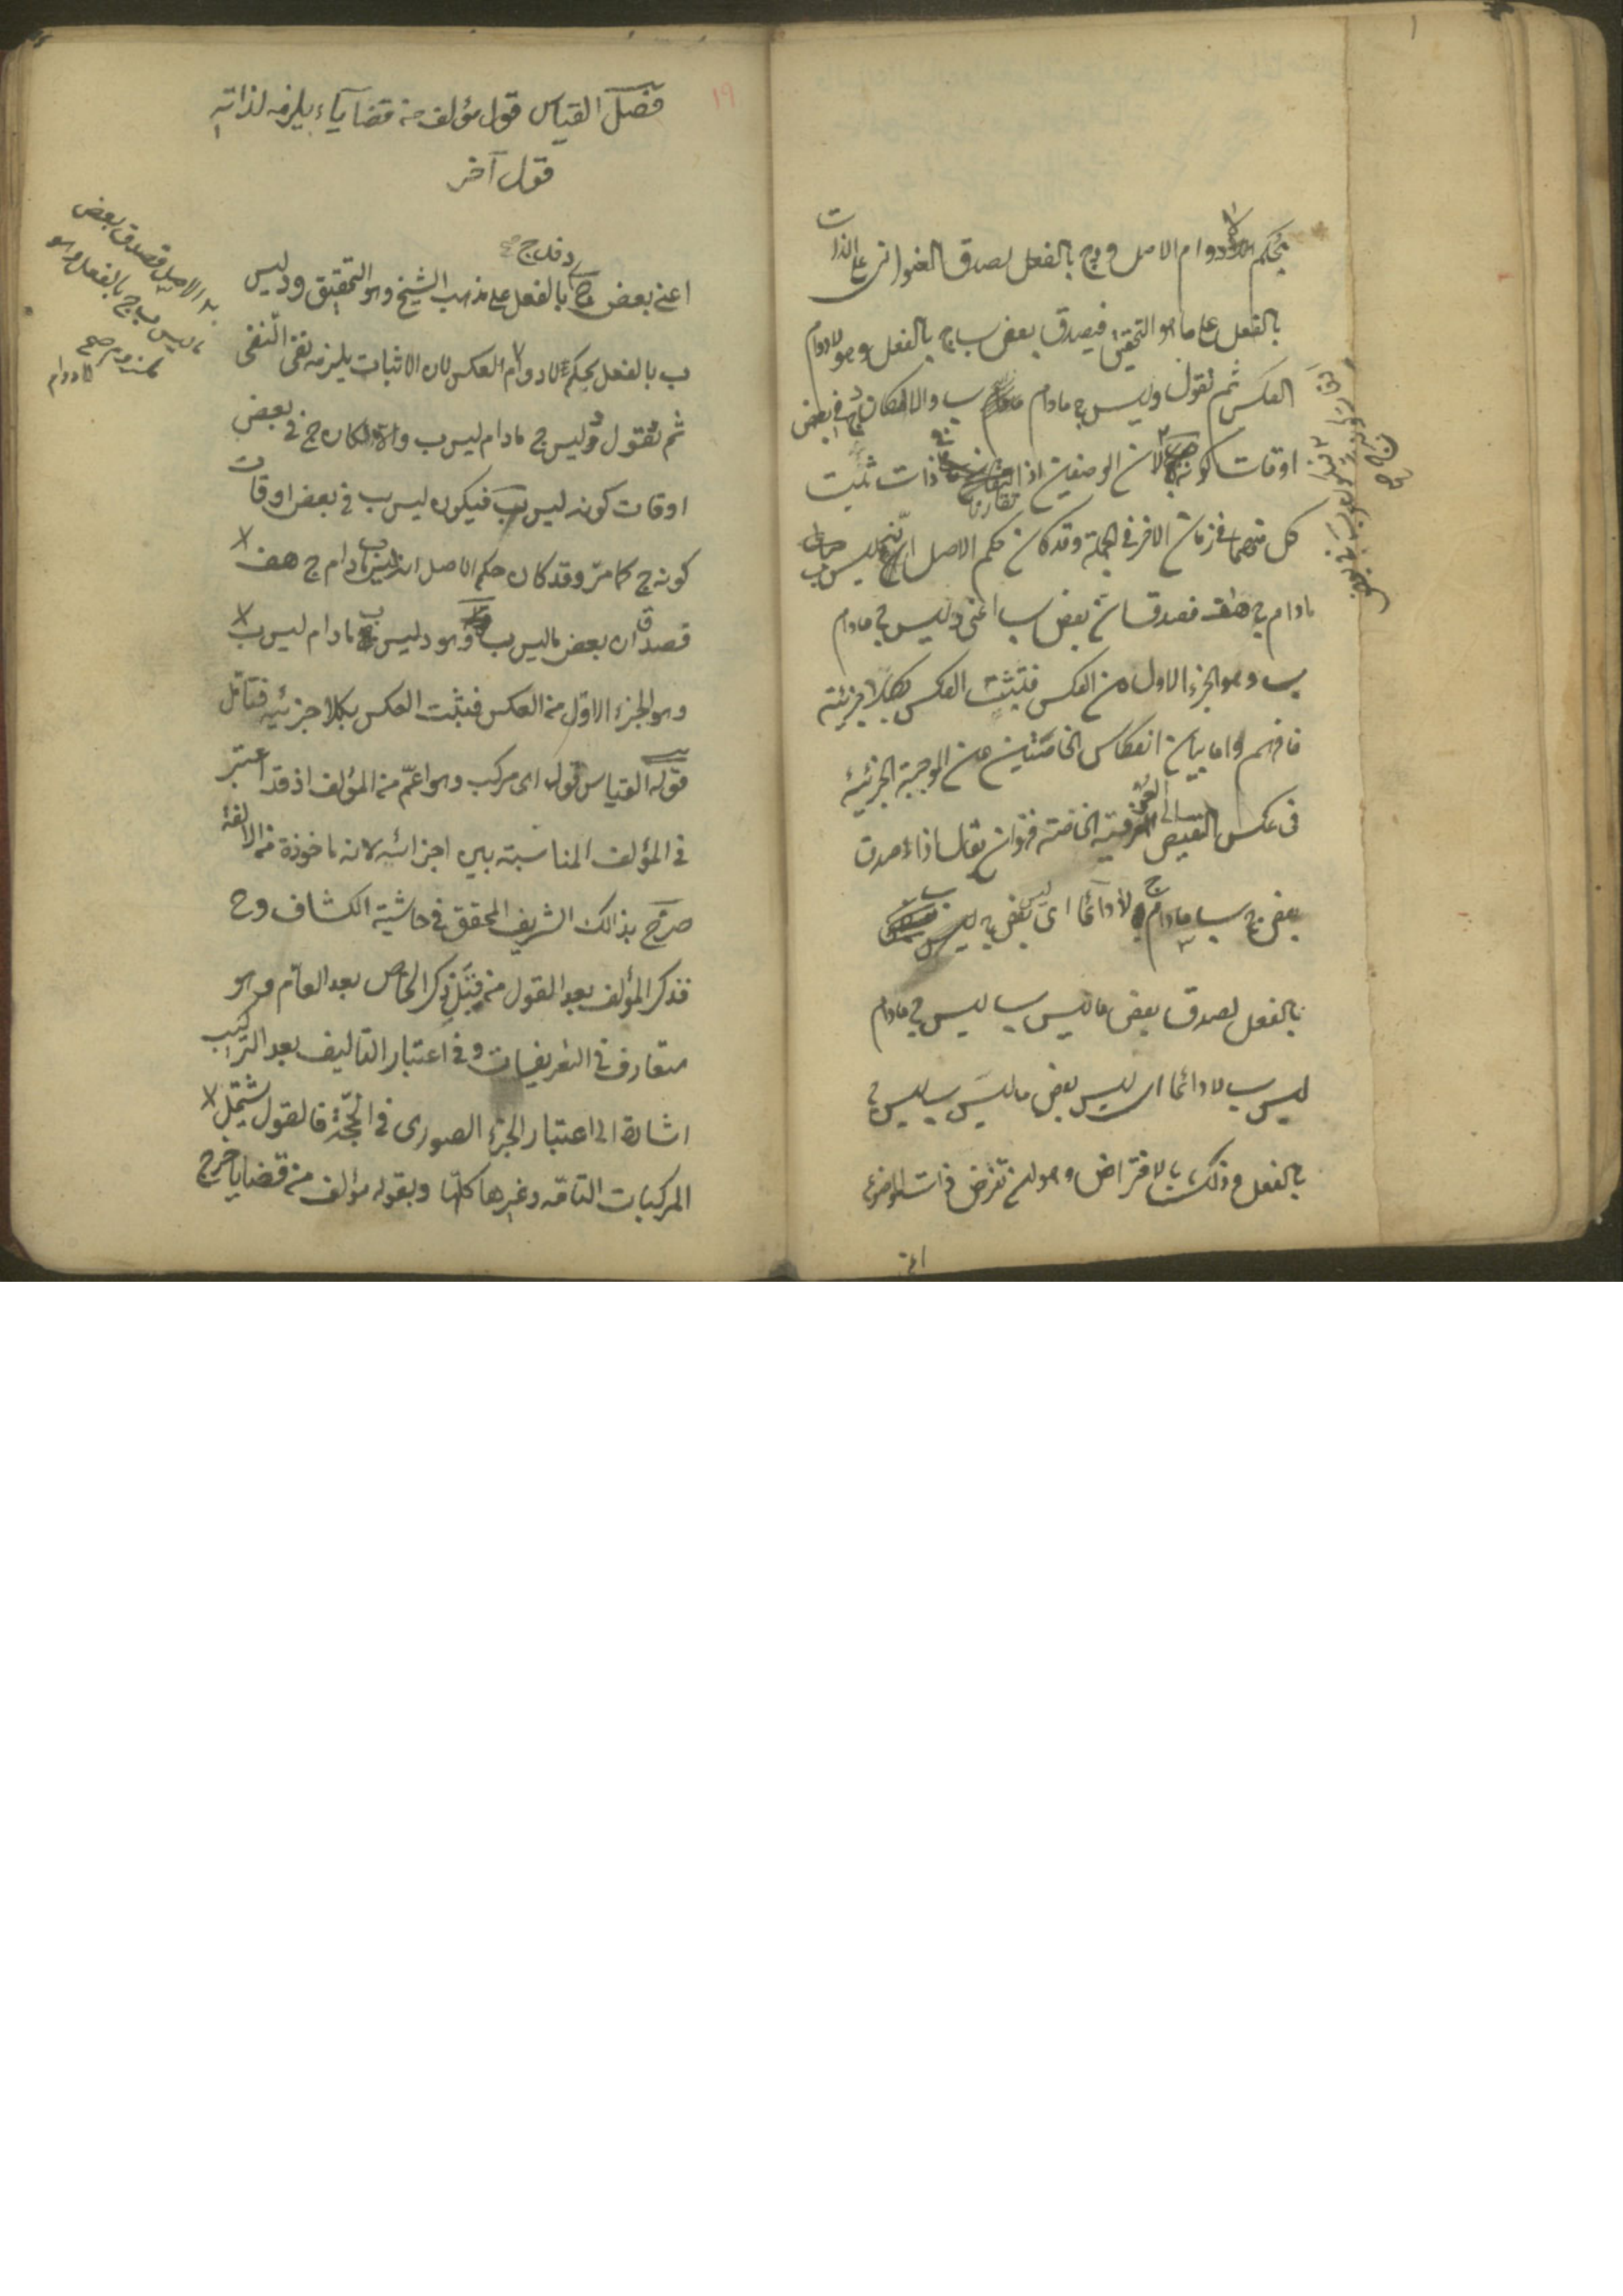 بحكم لادوام الاصل و د ج بالفعل لصدق العنوانى على الذات
بالفعل على ما هو التحقيق فيصدق بعض ب ج بالفعل وهو لادوام
العكس ثم نقول د ليس ج مادام ب والا لكان ج فى بعض
اوقات كونه ب لان الوصفين اذا تقارنا فى ذات ثبت
كل منهما فى زمان الاخر فى الجملة وقد كان حكم الاصل انه ليس ب
مادام ج هف فصدق ان بعض ب اعنى د ليس ج مادام
ب وهو الجزء الاول من العكس فثبت العكس بكلا جزئيه
فافهم واما بيان انعكاس الخاصتين من الموجبة الجزئية
فى عكس النقيض الى العرفية الخاصة فهو ان يقال اذا صدق
بعض ج ب مادام ج لا دائما اى ليس بعض ج ب
بالفعل لصدق بعض ما ليس ب ليس ج مادام
ليس ب لا دائما اى ليس بعض ما ليس ب ليس ج
بالفعل وذلك بالافتراض وهو ان نفرض ذات الموضوع
اعنى
١٩
فصل القياس قول مؤلف من قضايا يلزمه لذاته
قول آخر
اعنى بعض ج د فد ج بالفعل على مذهب الشيخ وهو التحقيق و د ليس
ب بالفعل بحكم لادوام الاصل فصدق بعض
ما ليس ب ج بالفعل وهو
لادوام العكس لان الاثبات يلزمه نفى النفى
ثم نقول د ليس ج مادام ليس ب والا لكان ج فى بعض
اوقات كونه ليس ب فيكون ليس ب فى بعض اوقات
كونه ج كما مرّ وقد كان حكم الاصل انه ب مادام ج هف
فصدق ان بعض ما ليس ب وهو د ليس ج مادام ليس ب
وهو الجزء الاول من العكس فثبت العكس بكلا جزئيه فتأمل
قوله القياس قول اى مركب وهو اعمّ من المؤلف اذ قد اعتبر
فى المؤلف المناسبة بين اجزائه لانه ماخوذة من الالفة
صرّح بذالك الشريف المحقق فى حاشية الكشاف وح
فذكر المؤلف بعد القول من قبيل ذكر الخاص بعد العامّ وهو
متعارف فى التعريفات وفى اعتبار التاليف بعد التركيب
اشارة الى اعتبار الجزء الصورى فى الحجّة فالقول يشتمل
المركبات التامّة وغيرها كلّها وبقوله مؤلف من قضايا خرج